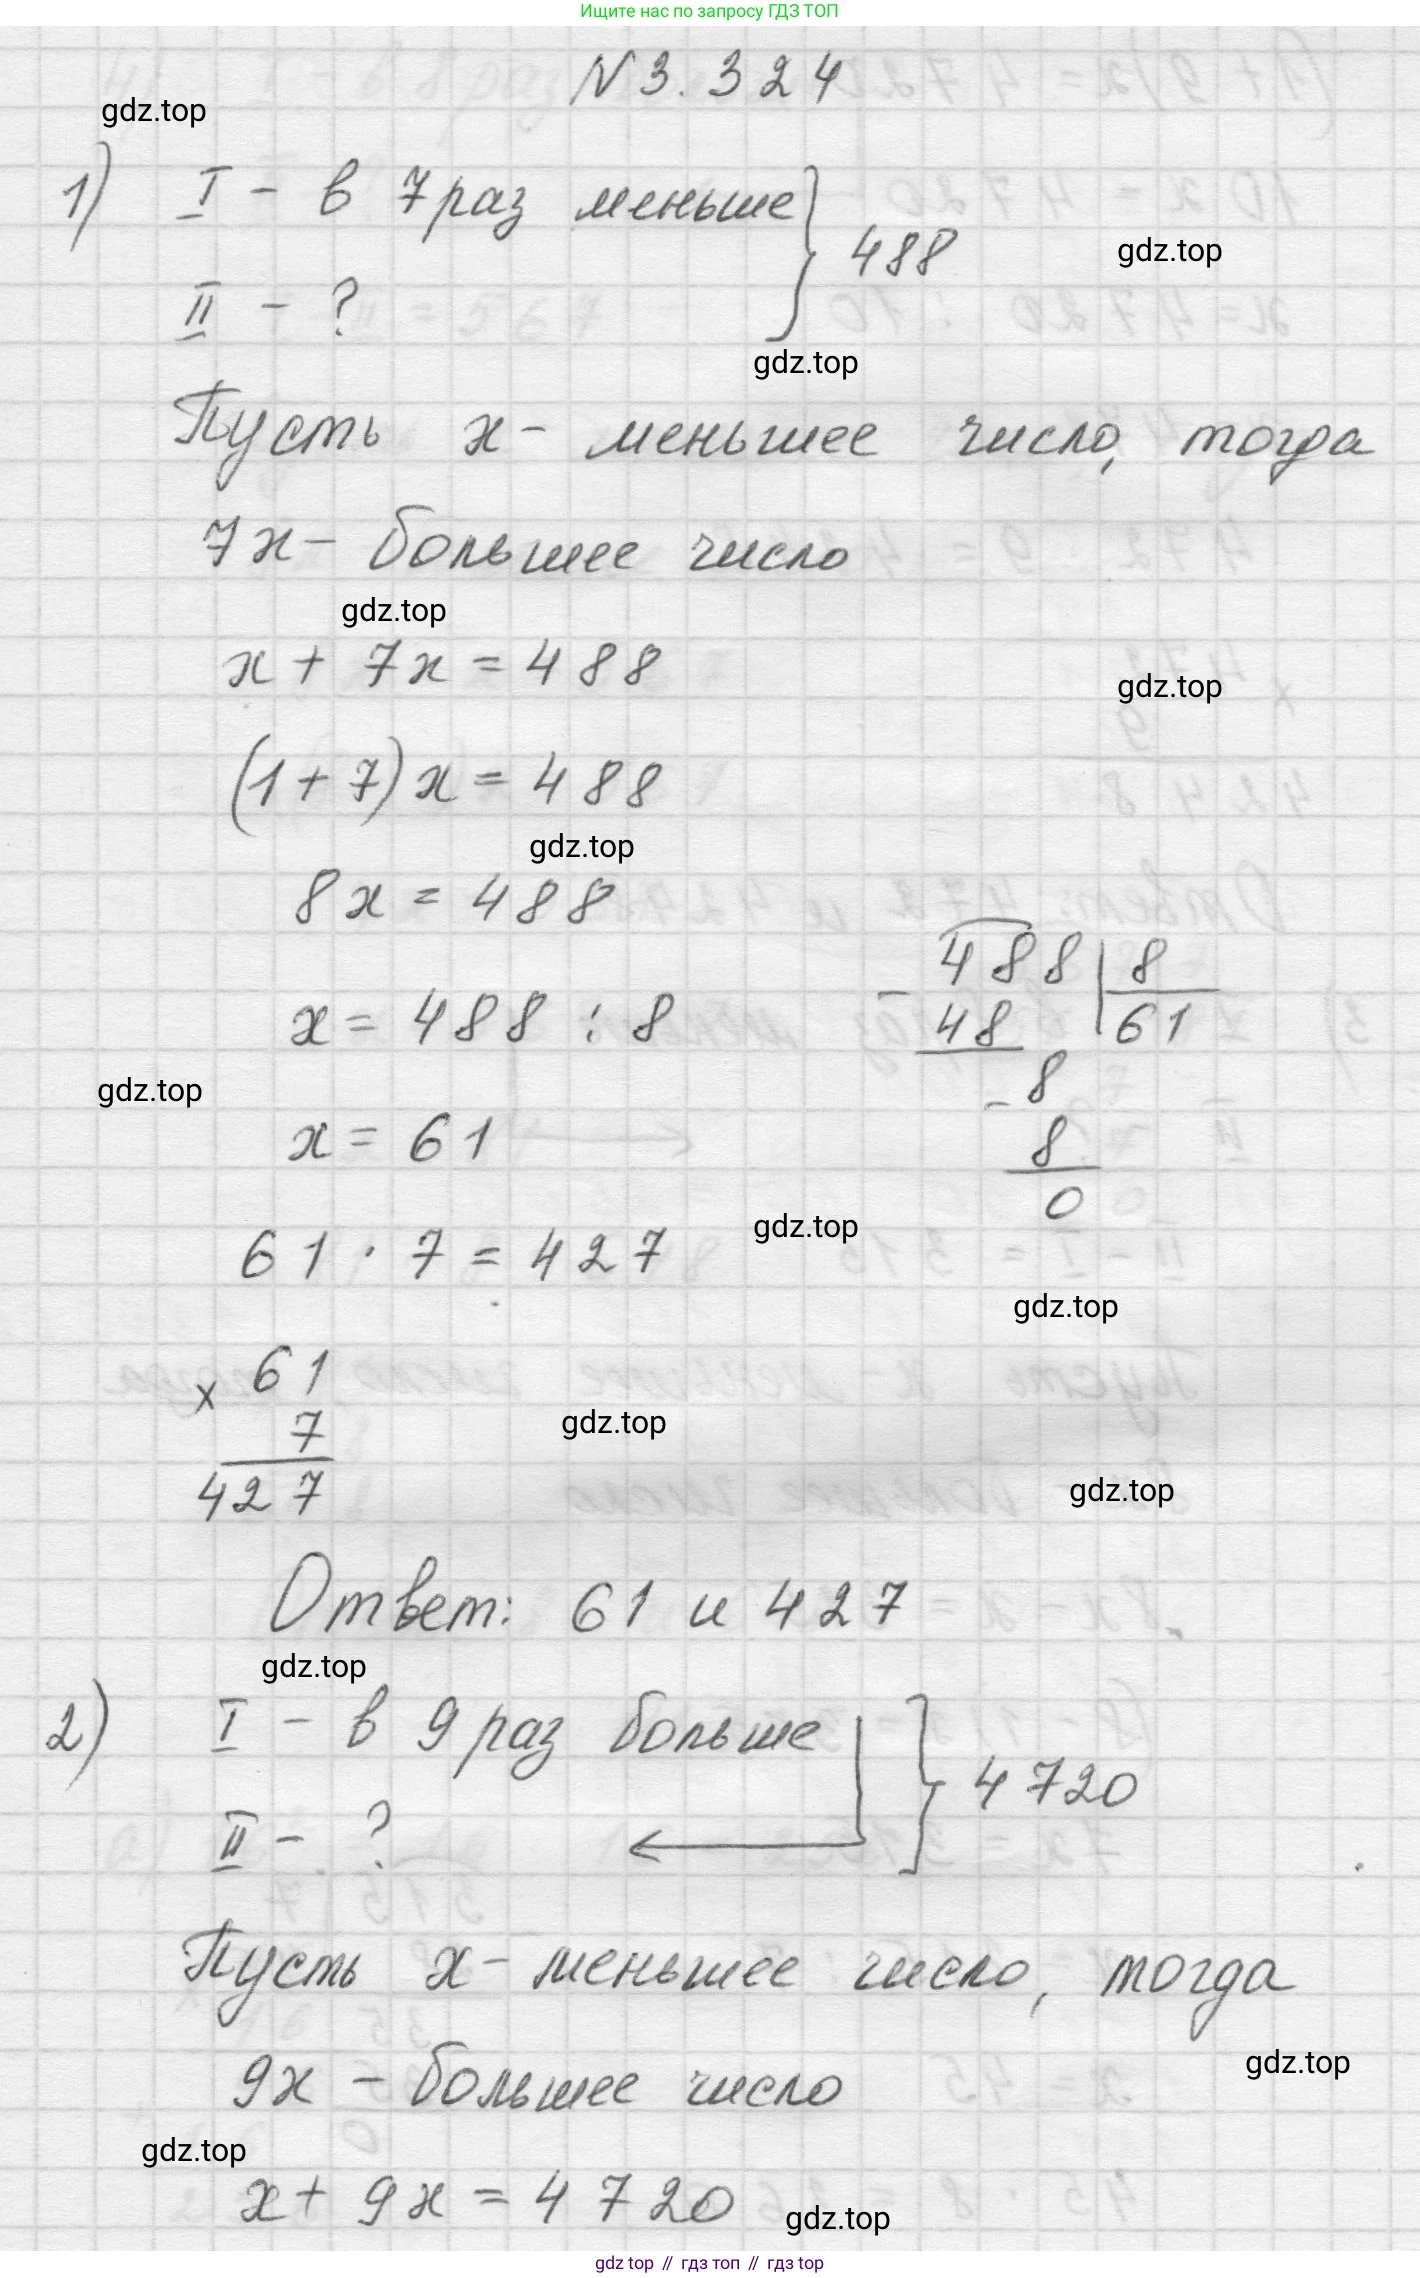 Ищите нас по запросу ГДЗ ТОП
N 3.324
gdz.top
1) I - в 7 раз меньше
488
gdz.top
II - ?
gdz.top
Пусть x - меньшее число, тогда
7x - большее число
gdz.top
x + 7x = 488
gdz.top
(1 + 7)x = 488
gdz.top
8x = 488
488 | 8
x = 488 : 8
- 48 61
gdz.top
- 8
x = 61
8
0
gdz.top
61 · 7 = 427
gdz.top
x 61
7
gdz.top
427
gdz.top
Ответ: 61 и 427
gdz.top
2) I - в 9 раз больше
4720
II - ?
Пусть x - меньшее число, тогда
gdz.top
9x - большее число
gdz.top
x + 9x = 4720
gdz.top
gdz top // гдз топ // гдз top